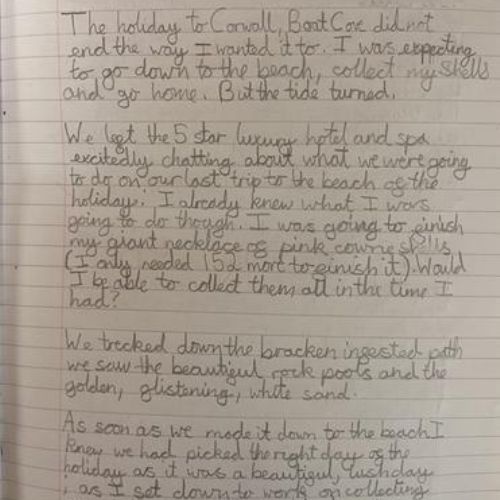 The holiday to Corwall, Boat Cove did not
end the way I wanted it to. I was expecting
to go down to the beach, collect my shells
and go home. But the tide turned.
We left the 5 star luxury hotel and spa
excitedly chatting about what we were going
to do on our last trip to the beach of the
holiday. I already knew what I was
going to do though. I was going to finish
my giant necklace of pink cowrie shells
(I only needed 152 more to finish it). Would
I be able to collect them all in the time I
had?
We trecked down the bracken ingested path
we saw the beautiful rock pools and the
golden, glistening, white sand.
As soon as we made it down to the beach I
knew we had picked the right day of the
holiday as it was a beautiful, lush day
as I set down to work on collecting